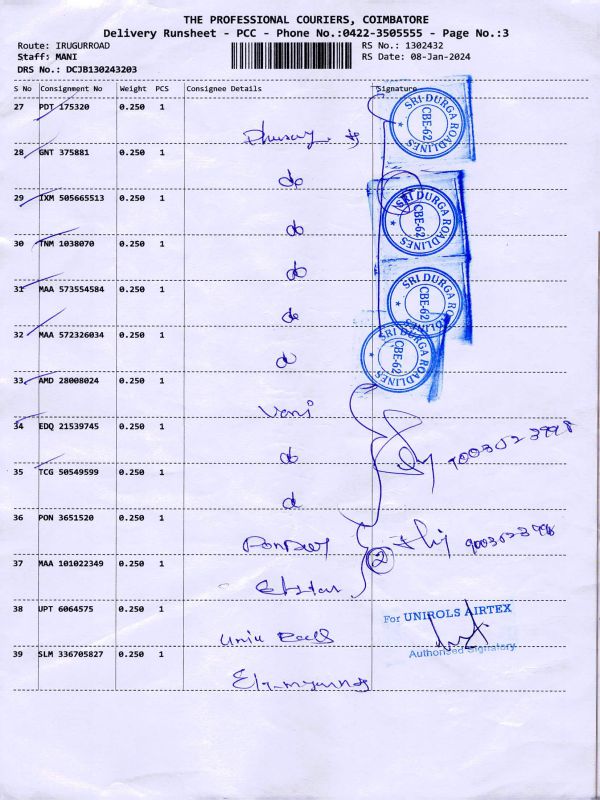 THE PROFESSIONAL COURIERS, COIMBATORE
Delivery Runsheet - PCC - Phone No.:0422-3505555 - Page No.:3
Route: IRUGURROAD
Staff: MANI
DRS No.: DCJB130243203
RS No.: 1302432
RS Date: 08-Jan-2024
S No Consignment No Weight PCS Consignee Details Signature
27 PDT 175320 0.250 1
SRI DURGA ROADLINES
CBE-62
28 GNT 375881 0.250 1 do
29 IXM 505665513 0.250 1 do
SRI DURGA ROADLINES
CBE-62
30 TNM 1038070 0.250 1 do
31 MAA 573554584 0.250 1 do
SRI DURGA ROADLINES
CBE-62
32 MAA 572326034 0.250 1 do
SRI DURGA ROADLINES
CBE-62
33 AMD 28008024 0.250 1 Vani
34 EDQ 21539745 0.250 1 do
35 TCG 50549599 0.250 1 d
36 PON 3651520 0.250 1
37 MAA 101022349 0.250 1
2
38 UPT 6064575 0.250 1
For UNIROLS AIRTEX
Authorised Signatory
39 SLM 336705827 0.250 1